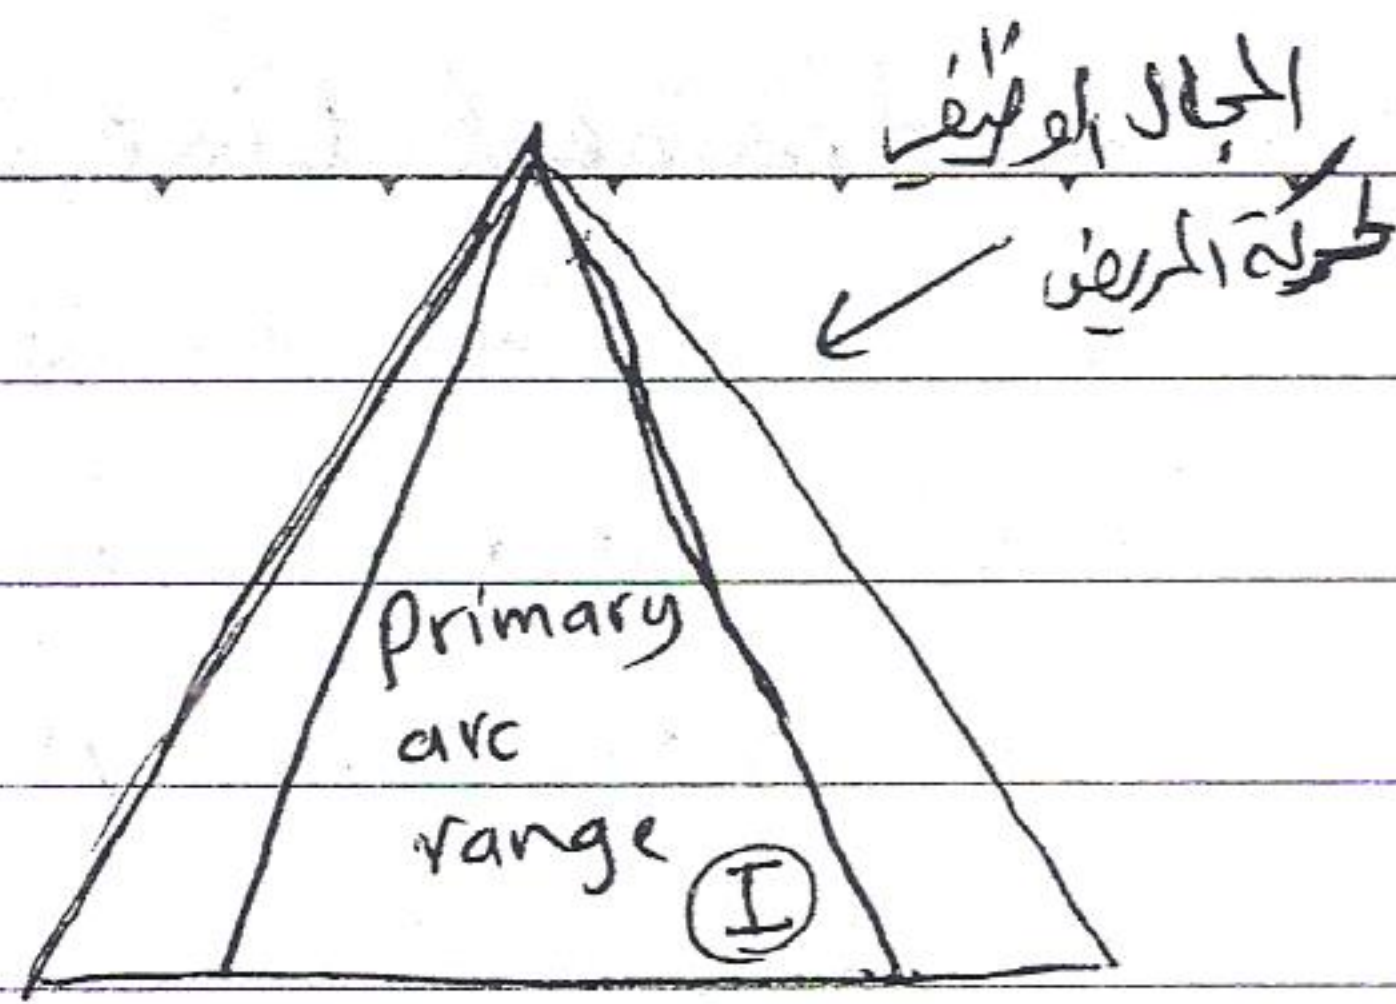 المجال الوظيفي
لحركة المريض
primary
arc
range
I